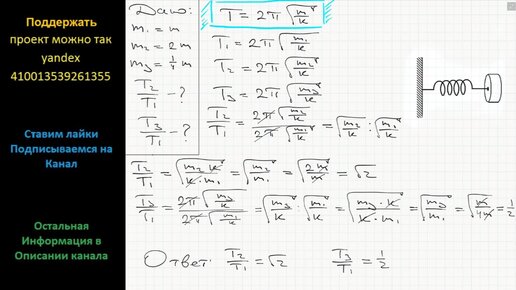 Поддержать
проект можно так
yandex
410013539261355
Ставим лайки
Подписываемся на
Канал
Остальная
Информация в
Описании канала
Дано:
m₁ = m
m₂ = 2m
m₃ = ¼ m
T₂/T₁ - ?
T₃/T₁ - ?
T = 2π√(m/k)
T₁ = 2π√(m₁/k)
T₂ = 2π√(m₂/k)
T₃ = 2π√(m₃/k)
T₂/T₁ = 2π√(m₂/k) / 2π√(m₁/k) = √(m₂/k) : √(m₁/k)
T₂/T₁ = √(m₂·k / k·m₁) = √(m₂/m₁) = √(2m/m) = √2
T₃/T₁ = 2π√(m₃/k) / 2π√(m₁/k) = √(m₃/k) : √(m₁/k) = √(m₃·k / k·m₁) = √(m₃/m₁) = √(m/4m) = 1/2
Ответ: T₂/T₁ = √2 T₃/T₁ = 1/2